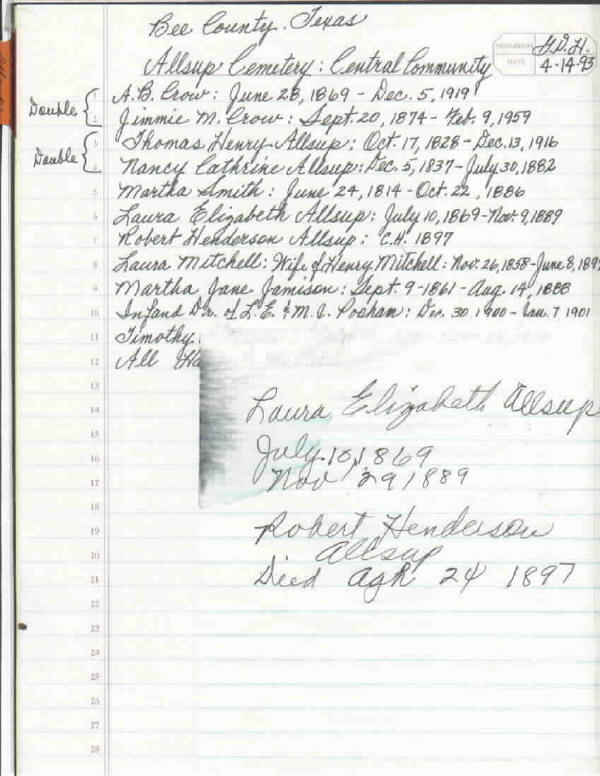 Bee County, Texas
Allsup Cemetery: Central Community
PREPARED BY G.D.H.
DATE 4-14-93
Double
A.B. Crow: June 28, 1869 - Dec. 5, 1919
Jimmie M. Crow: Sept. 20, 1874 - Feb. 9, 1959
Double
Thomas Henry Allsup: Oct. 17, 1828 - Dec. 13, 1916
Nancy Cathrine Allsup: Dec. 5, 1837 - July 30, 1882
Martha Smith: June 24, 1814 - Oct. 22, 1886
Laura Elizabeth Allsup: July 10, 1869 - Nov. 9, 1889
Robert Henderson Allsup: C.H. 1897
Laura Mitchell: Wife of Henry Mitchell: Nov. 26, 1858 - June 8, 189
Martha Jane Jamison: Sept. 9 - 1861 - Aug. 14, 1888
Infand Dr. of L.E. & M.J. : Dec. 30 1900 - Jan. 7 1901
Timothy
All Ha
Laura Elizabeth Allsup
July 10, 1869
Nov 29 1889
Robert Henderson
Allsup
Died 24 1897
1
2
3
4
5
6
7
8
9
10
11
12
13
14
15
16
17
18
19
20
21
22
23
24
25
26
27
28